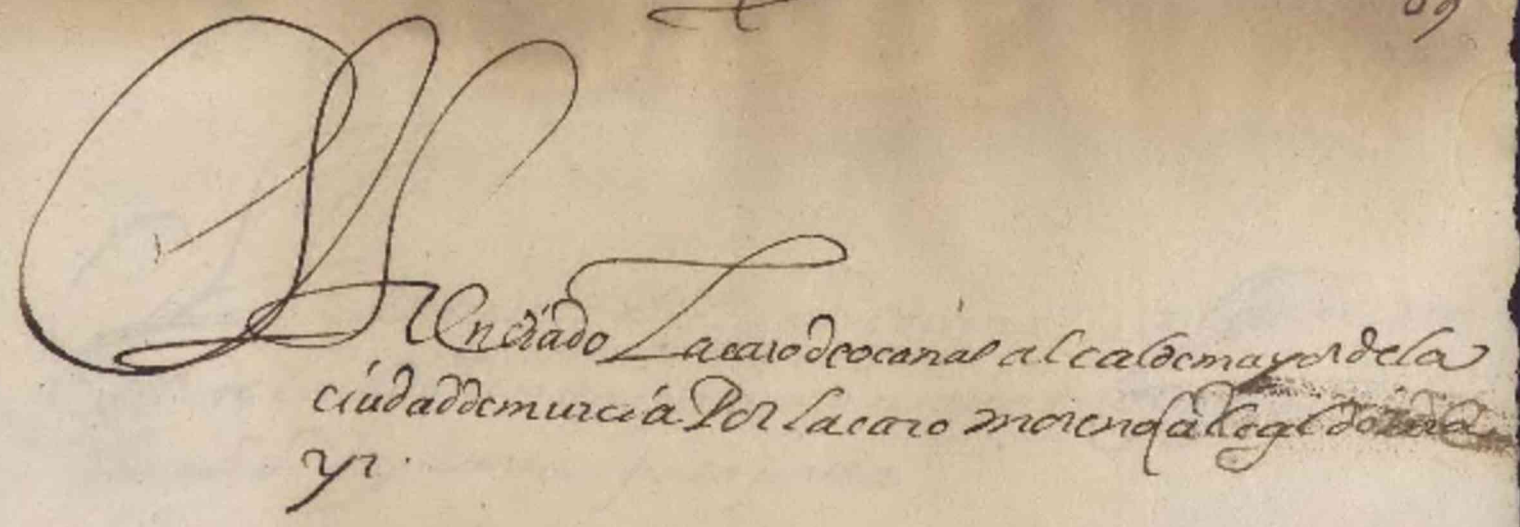 89
El licenciado Lacaro de ocaña alcalde mayor de la
ciudad de murcia Por lacaro moreno